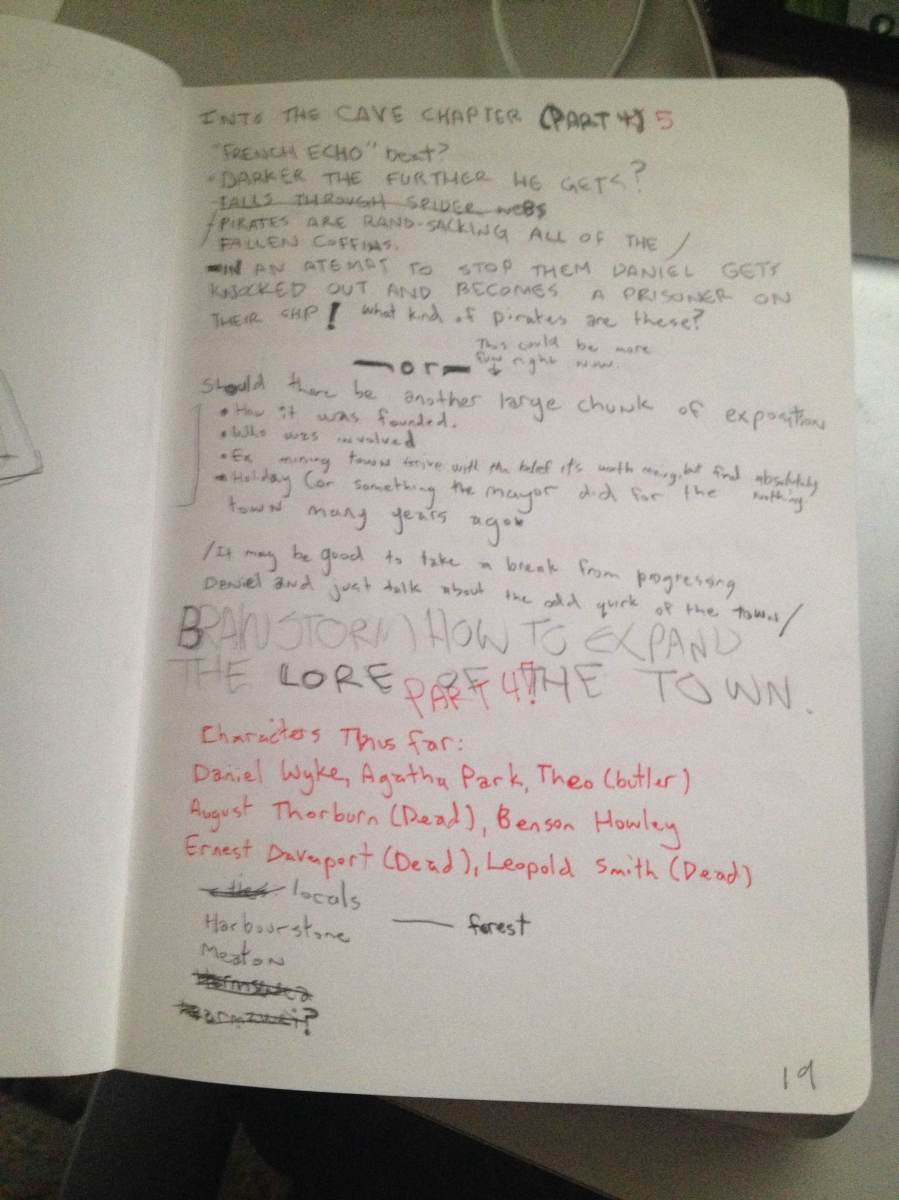 INTO THE CAVE CHAPTER (PART 4) 5
"FRENCH ECHO" beat?
• DARKER THE FURTHER HE GETS?
- FALLS THROUGH SPIDER WEBS
/PIRATES ARE RAND-SACKING ALL OF THE /
FALLEN COFFINS.
- IN AN ATEMPT TO STOP THEM DANIEL GETS
KNOCKED OUT AND BECOMES A PRISONER ON
THEIR SHIP! What kind of pirates are these?
This could be more
— or — fun right now.
Should there be another large chunk of exposition
• How it was founded.
• Who was involved
• Ex mining town arrive with the belief it's worth mining, but find absolutely
nothing
• Holiday (or something the mayor did for the
town many years ago.
/It may be good to take a break from progressing
Daniel and just talk about the odd quirk of the town/
BRAINSTORM HOW TO EXPAND
THE LORE OF THE TOWN.
PART 4?
Characters Thus far:
Daniel Wyke, Agatha Park, Theo (butler)
August Thorburn (Dead), Benson Howley
Ernest Davenport (Dead), Leopold Smith (Dead)
locals
Harbourstone — forest
Meaton
19